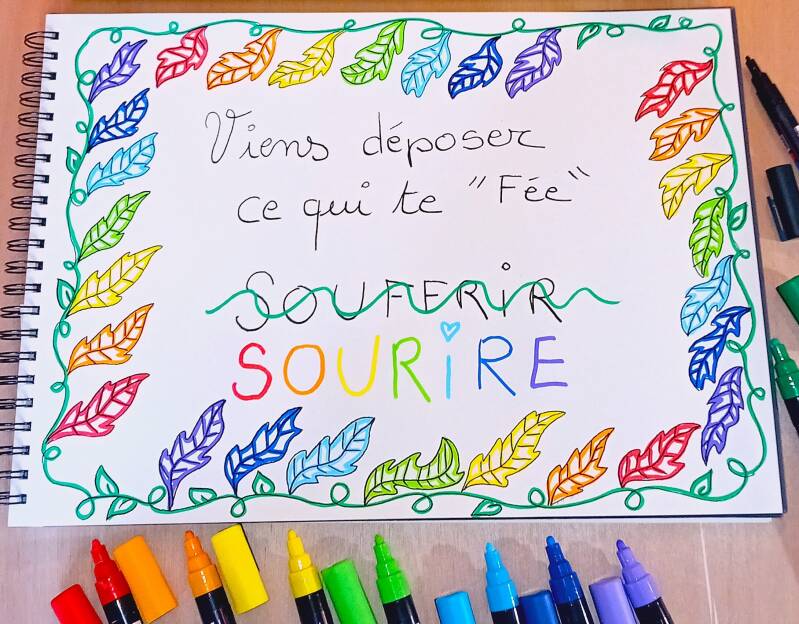 Viens déposer
ce qui te "Fée"
SOUFFRIR
SOURIRE